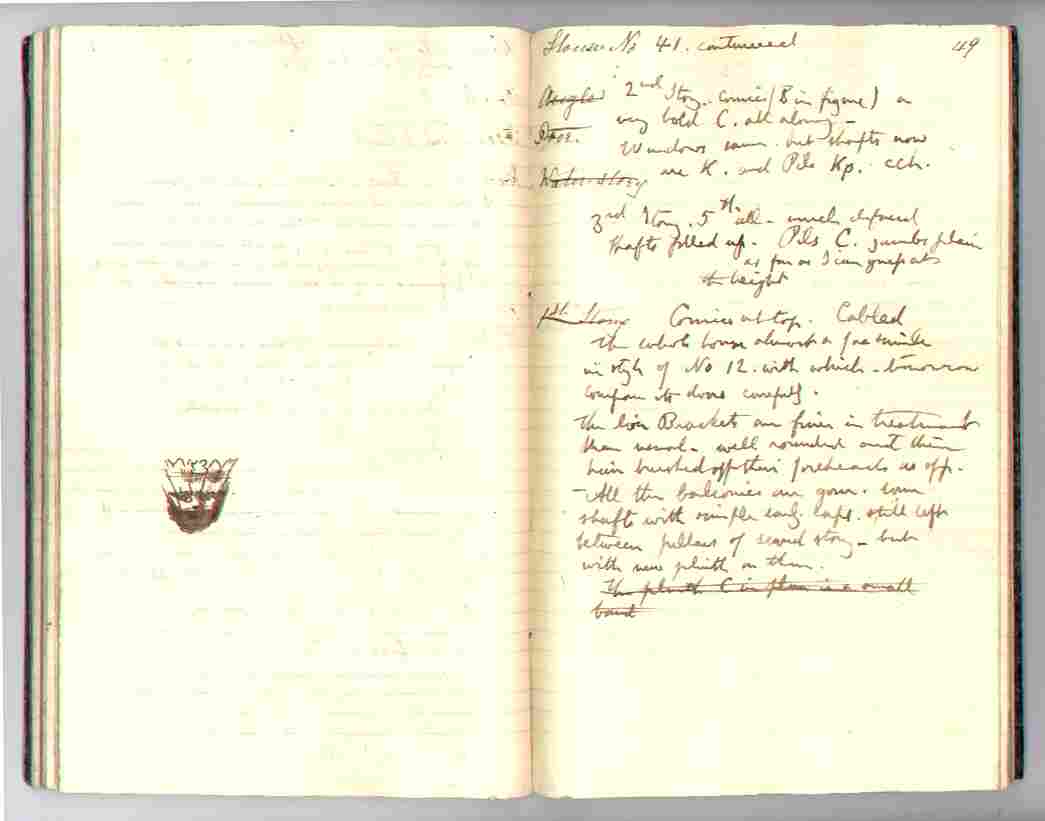 House No 41. continued
49
Angle
2nd Story. cornice (B in figure) a
very bold C. all along -
Door.
Windows same. but shafts now
Water story
are K. and Pils Kp. cch.
3rd Story. 5th all - much defaced
shafts filled up. Pils C. jambs plain
as far as I can guess at
the height
1st Story Cornice at top. Cabled
The whole house almost a facsimile
in style of No 12. with which - tomorrow
compare its doors carefully.
The lion Brackets are finer in treatment
than usual - well rounded and their
hair brushed off their foreheads as opp.
- All the balconies are gone. some
shafts with simple early caps. still left
between pillars of second story - but
with new plinth on them.
The plinth C in plan is a small
band